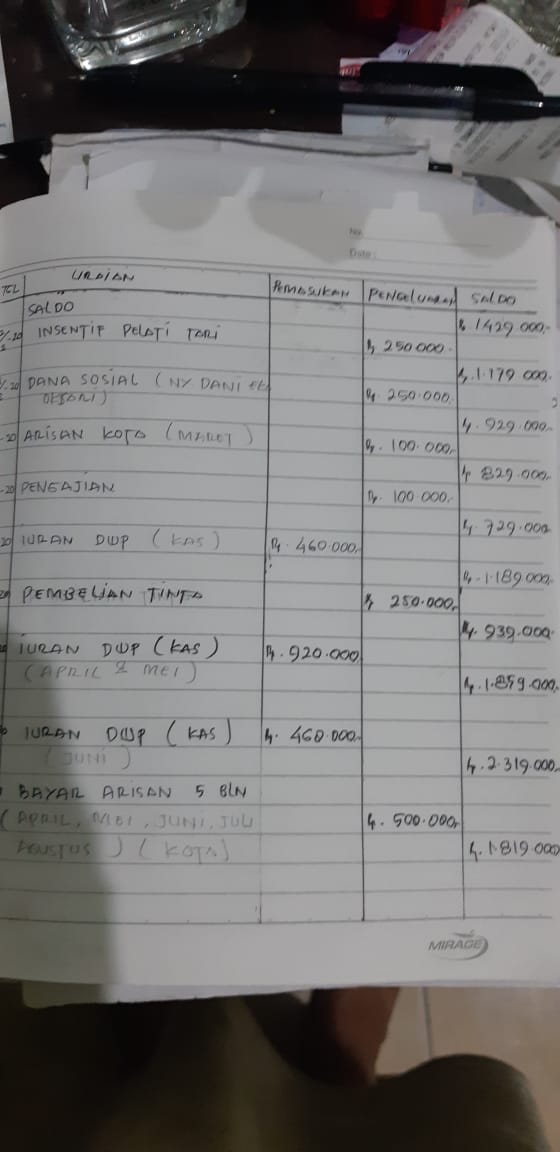 No.
Date :
TGL URAIAN PEMASUKAN PENGELUARAN SALDO
SALDO Rp 1429 000,-
INSENTIF PELATI TARI Rp 250.000.-
Rp.1.179 000,-
DANA SOSIAL ( NY DANI Rp. 250.000,-
Rp. 929.000,-
-20 ARISAN KOTA ( MARET ) Rp. 100.000,-
Rp 829.000,-
-20 PENGAJIAN Rp. 100.000,-
Rp 729.000
20 IURAN DWP ( KAS ) Rp. 460.000,-
Rp.1.189.000,-
PEMBELIAN TINTA Rp 250.000,-
Rp. 939.000,-
IURAN DWP (KAS) Rp. 920.000
( APRIL & MEI )
Rp.1.859.000,-
IURAN DWP ( KAS ) Rp. 460.000,-
( JUNI )
Rp.2.319.000,-
BAYAR ARISAN 5 BLN
( APRIL, MEI, JUNI, JULI Rp. 500.000,-
AGUSTUS ) ( KOTA ) Rp.1.819.000
MIRAGE